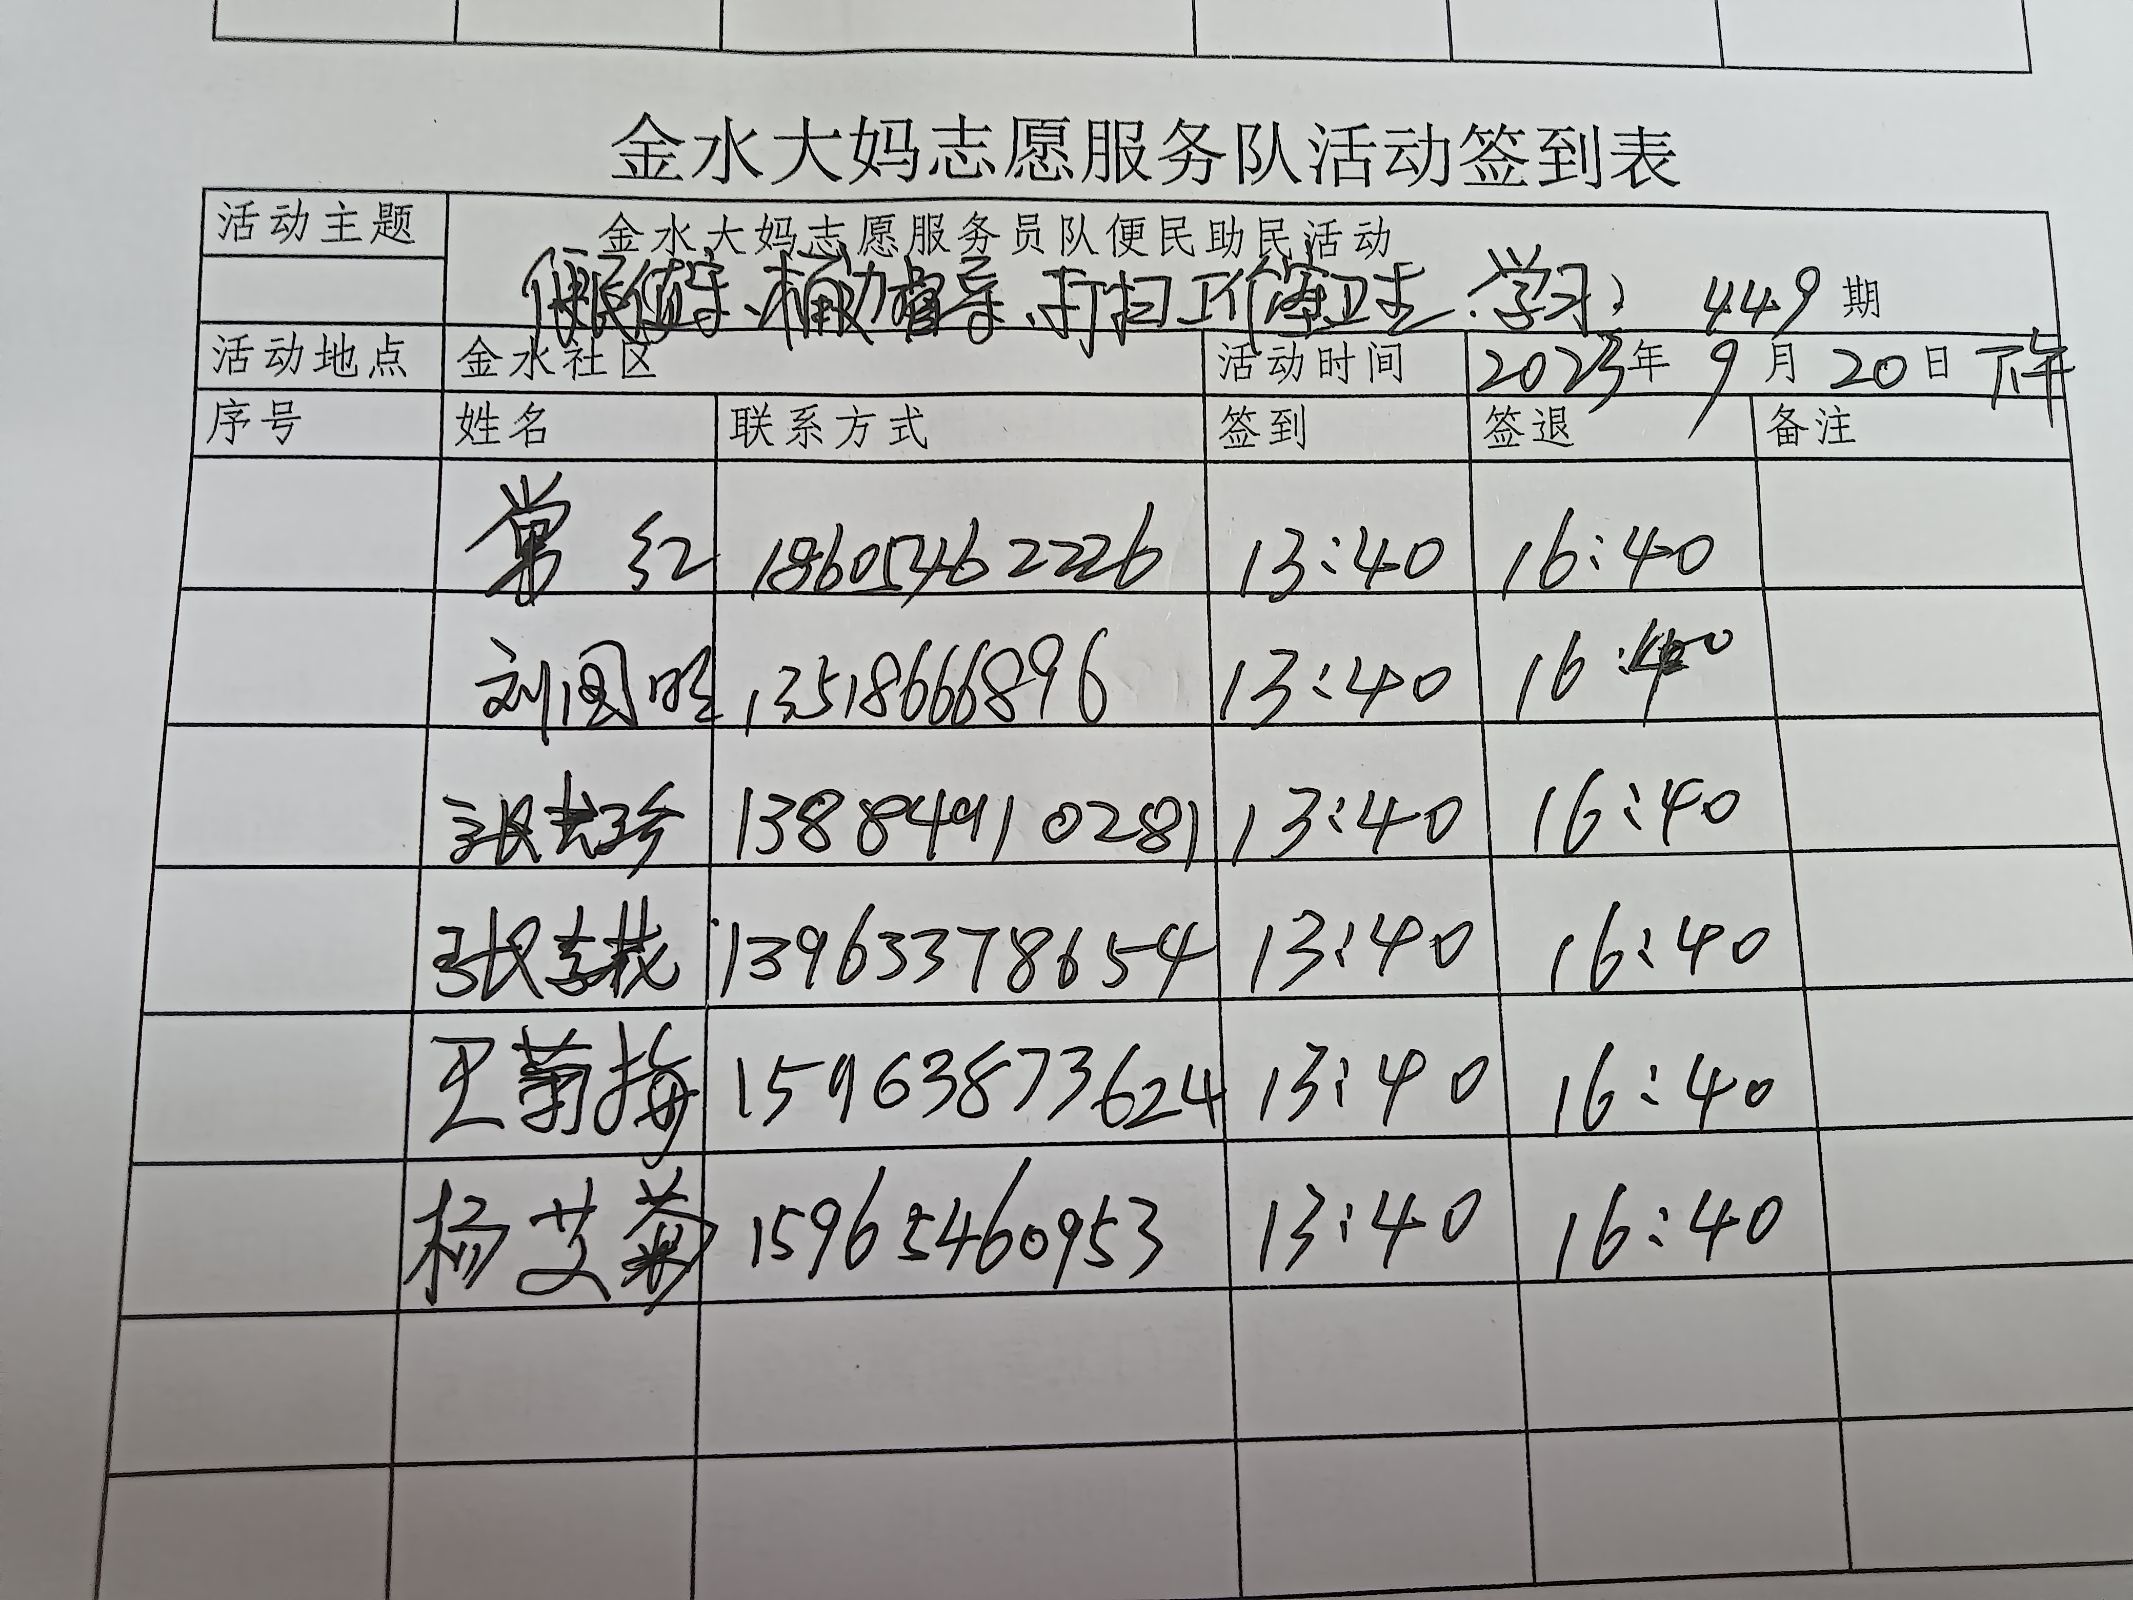 金水大妈志愿服务队活动签到表
活动主题 金水大妈志愿服务员队便民助民活动
便民值守、辅助指导、打扫工作室卫生、学习; 449期
活动地点 金水社区 活动时间 2023年9月20日下午
序号 姓名 联系方式 签到 签退 备注
常红 18605462226 13:40 16:40
刘国明 13518666896 13:40 16:40
张志珍 13884910281 13:40 16:40
张 13963378654 13:40 16:40
王菊梅 15963873624 13:40 16:40
杨艾菊 15965460953 13:40 16:40